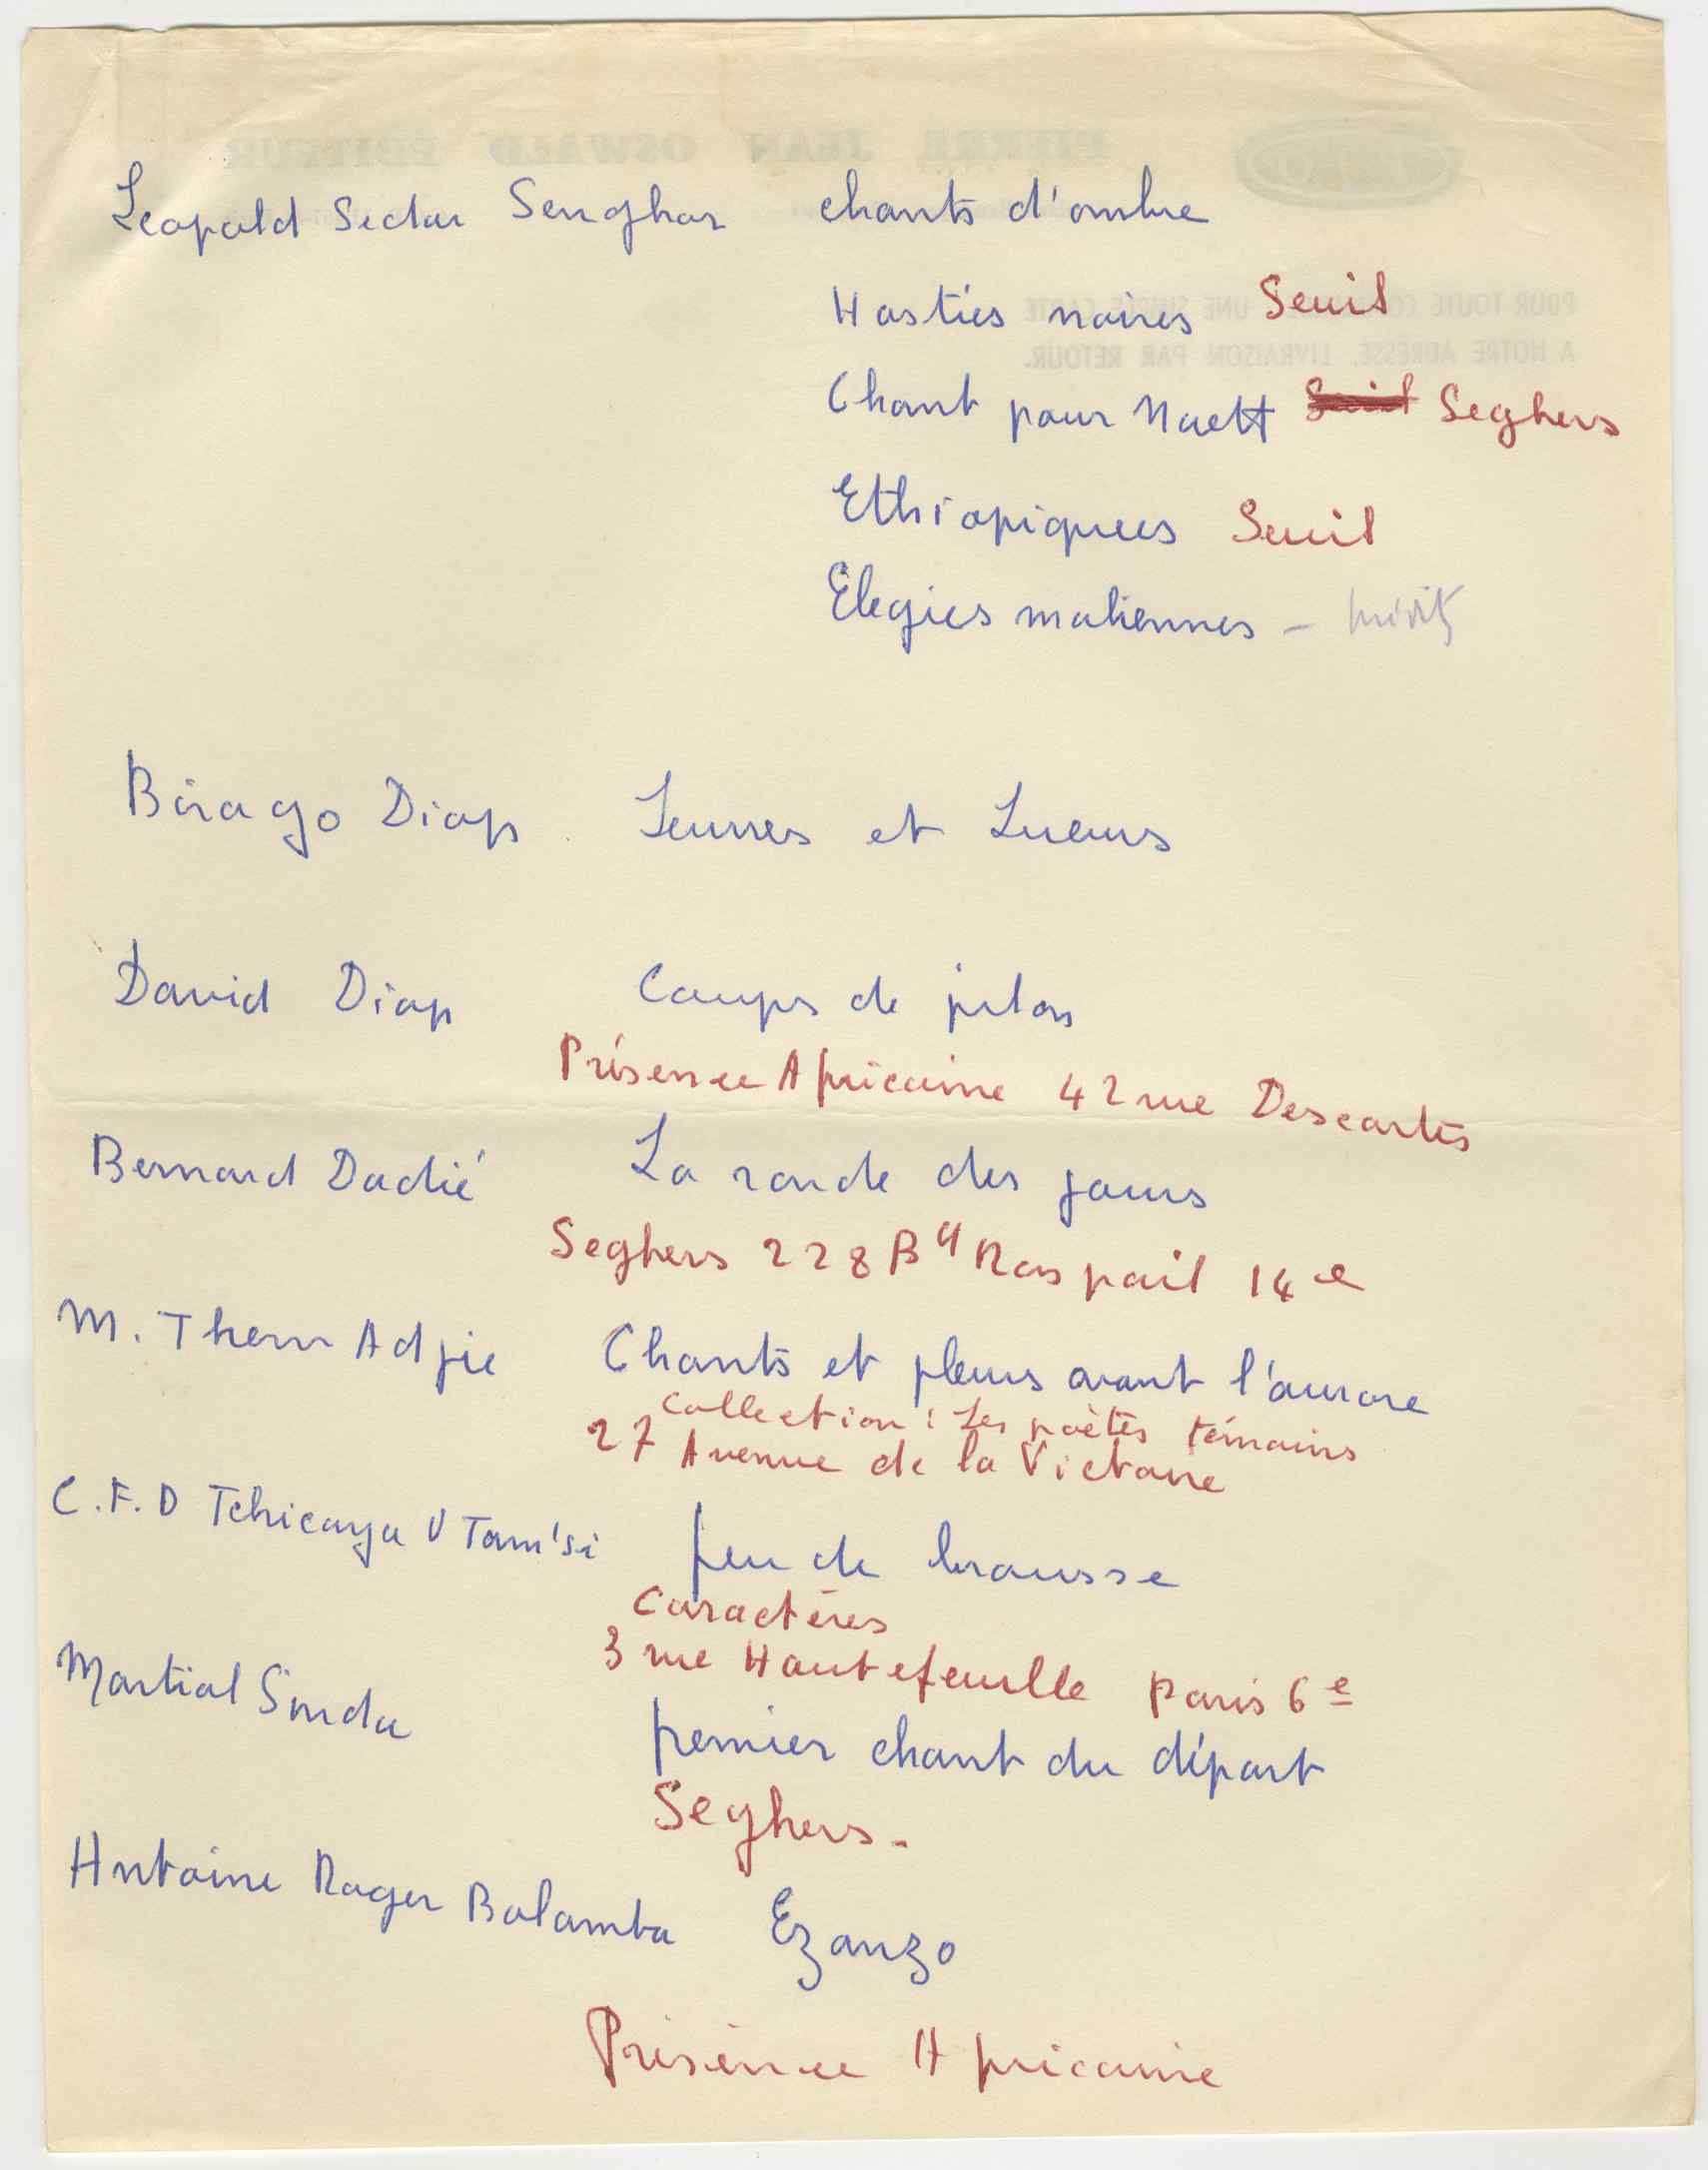 Leopold Sedar Senghor chants d'ombre
Hosties noires Seuil
Chant pour Naett Seuil Seghers
Ethiopiques Seuil
Elegies maliennes - inédit
Birago Diop Leurres et Lueurs
David Diop Coups de pilon
Présence Africaine 42 rue Descartes
Bernard Dadié La ronde des jours
Seghers 228 Bd Raspail 14e
M. Adjie Chants et pleurs avant l'aurore
Collection : Les poètes témoins
27 Avenue de la Victoire
C.F.D Tchicaya U Tam'si feu de brousse
Caractères
3 rue Hautefeuille Paris 6e
Martial Sinda premier chant du départ
Seghers.
Antoine Roger Bolamba Esanzo
Présence Africaine
PIERRE JEAN OSWALD ÉDITEUR
A NOTRE ADRESSE, LIVRAISON PAR RETOUR.